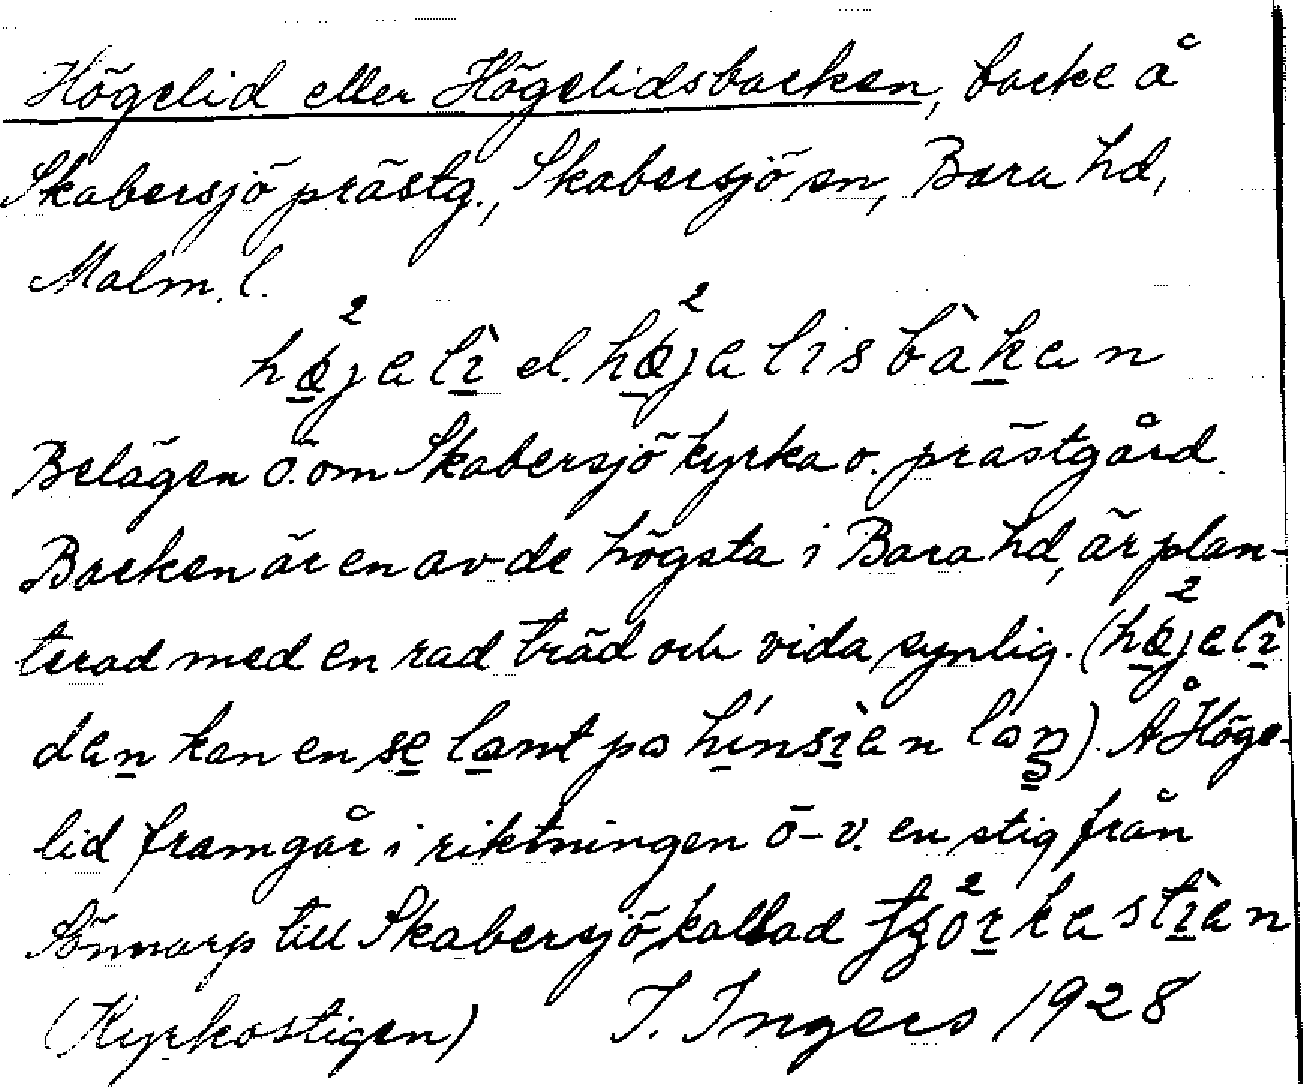 Högelid eller Högelidsbacken, backe å
Skabersjö prästg., Skabersjö sn, Bara hd,
Malm. l.
hø̱²jalì̱ el. hø̱²jalisbàḵan
Belägen ö. om Skabersjö kyrka o. prästgård.
Backen är en av de högsta i Bara hd, är plan-
terad med en rad träd och vida synlig. (hø̱²jalì̱
daṉ kan en se̱ la̱nt pa hí̱nsì̱an laṉ) Å Höge-
lid framgår i riktningen ö-v. en stig från
Sönnarp till Skabersjö, kallad
(Kyrkostigen) I. Ingers 1928